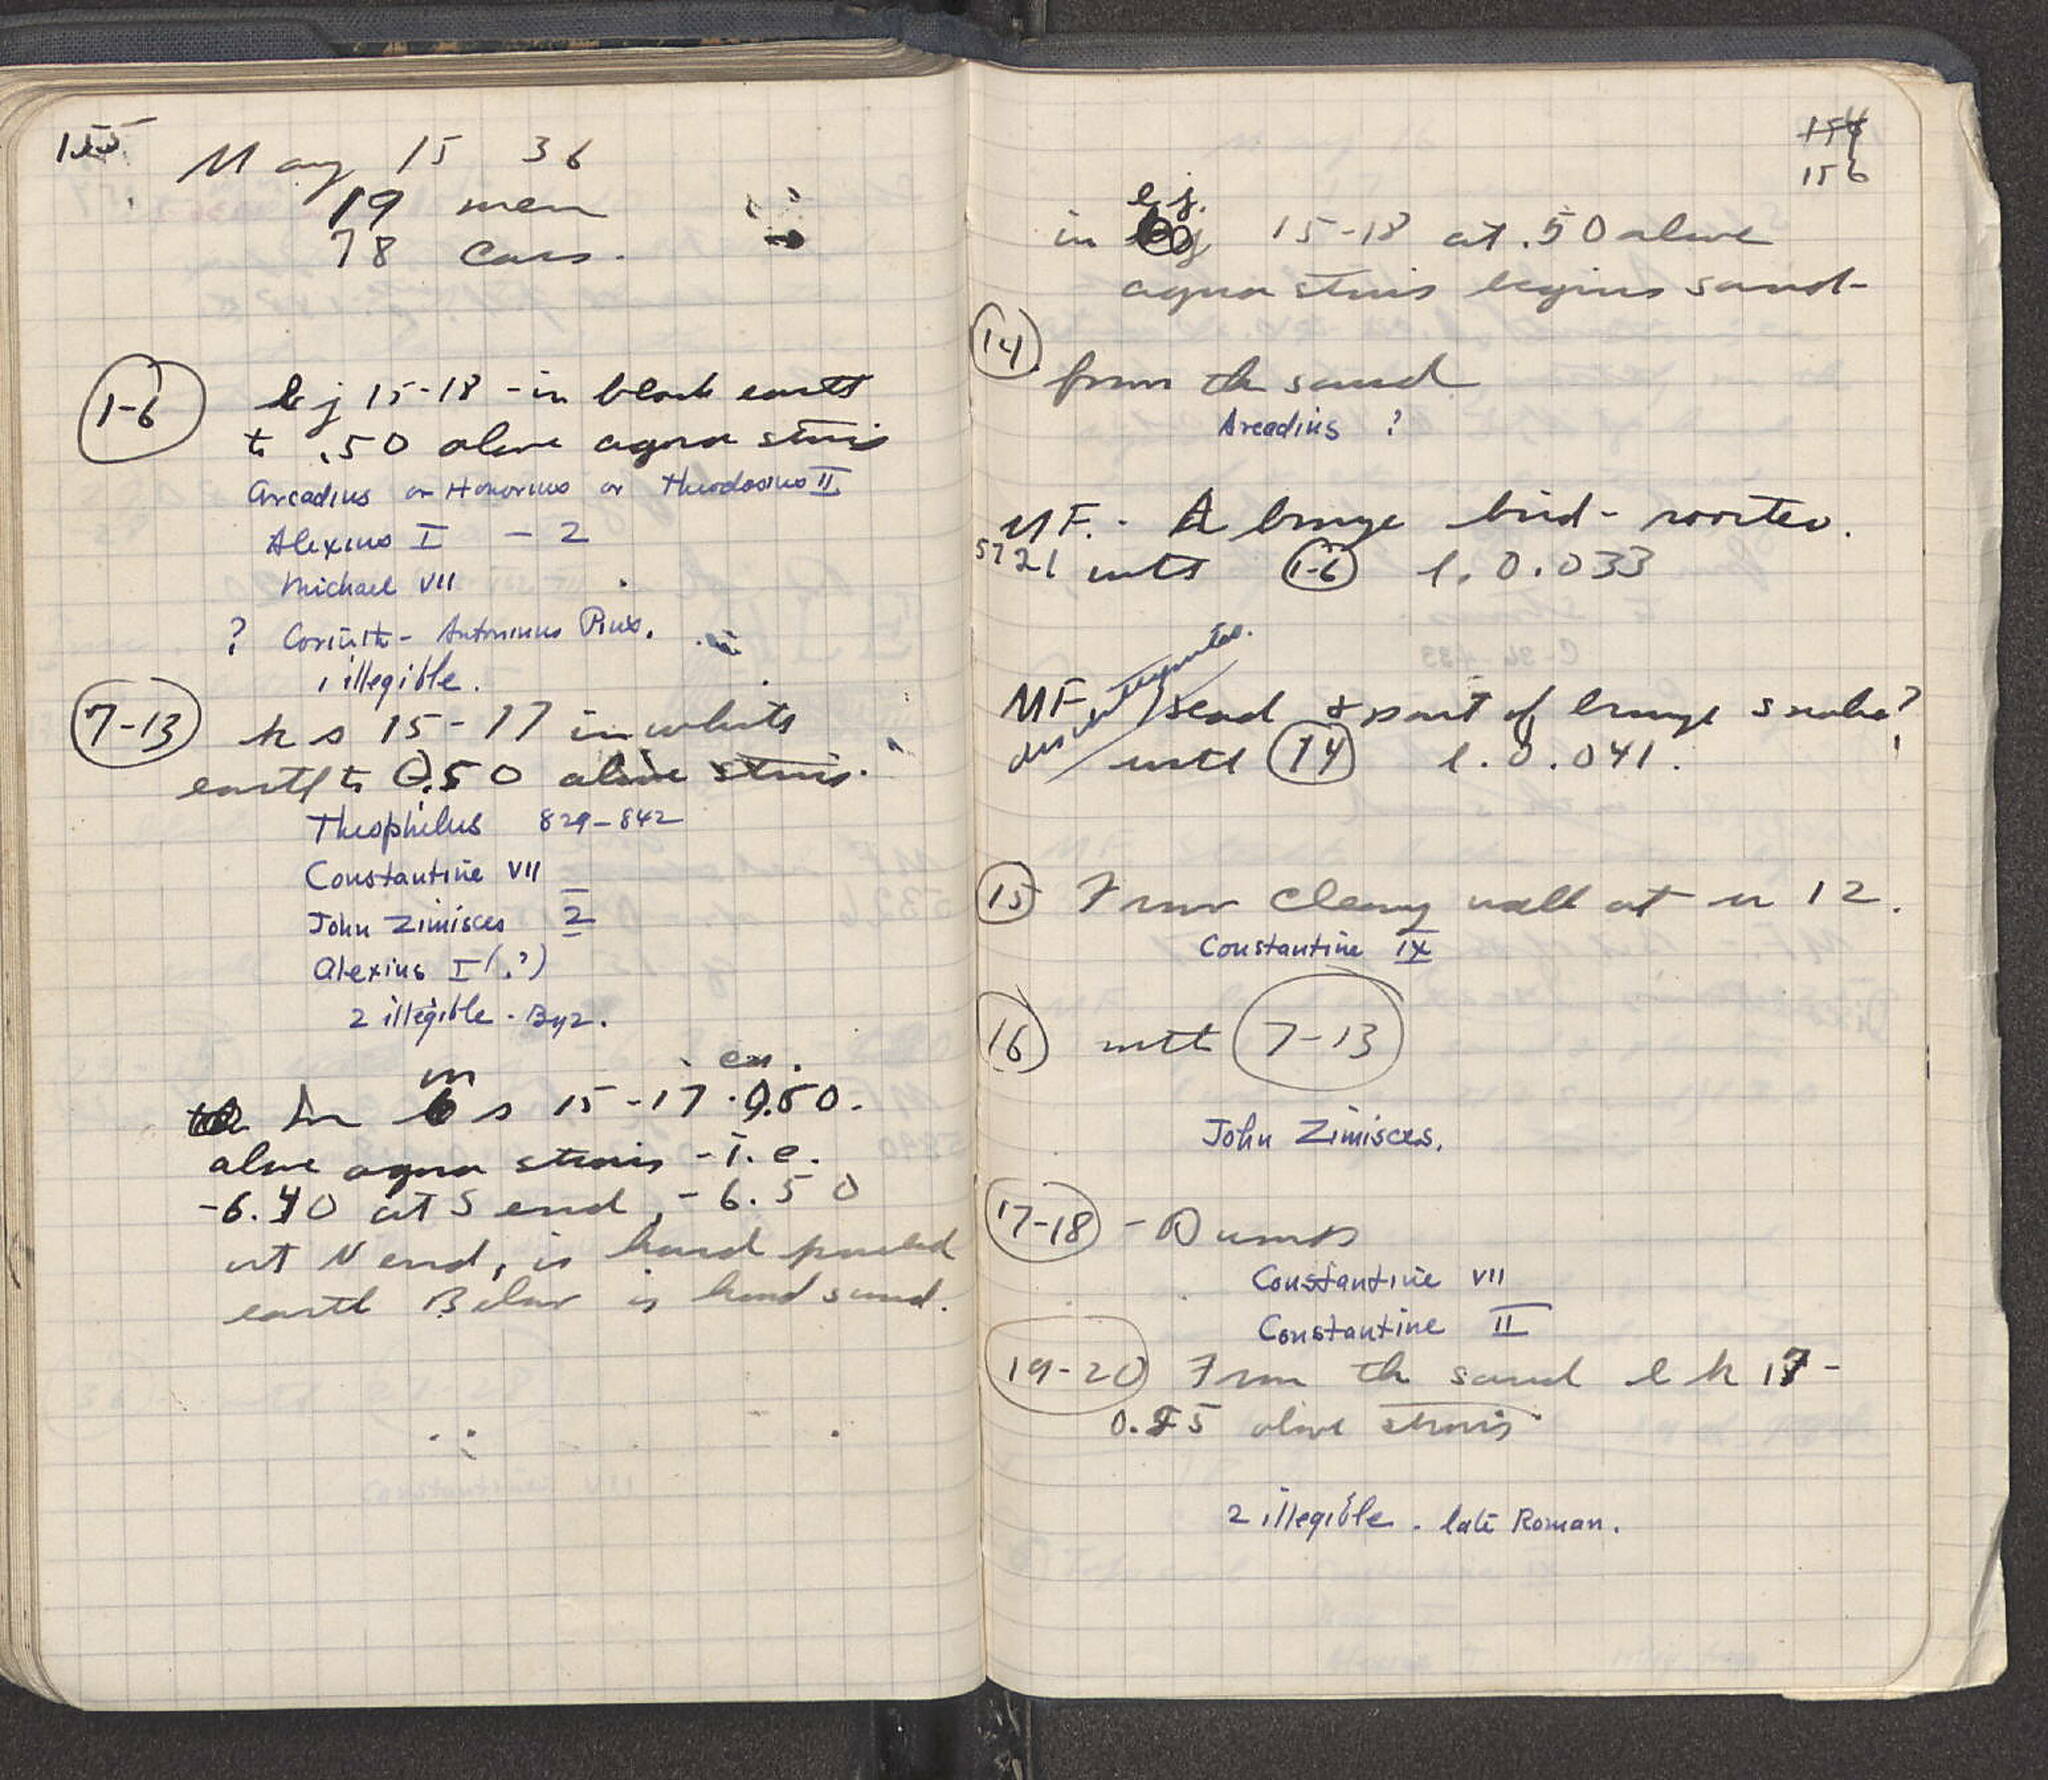 155
May 15 36
19 men
78 cars.
1-6
bj 15-18 - in black earth
to .50 above agora stosis
Arcadius or Honorius or Theodosius II
Alexius I - 2
Michael VII
? Corinth - Antoninus Pius.
1 illegible.
7-13
k s 15-17 in white
earth to 0.50 above
Theophilus 829-842
Constantine VII
John Zimisces 2
Alexius I (?)
2 illegible - Byz.
In s 15-17 0.50.
above agora - i.e.
-6.40 at S end, -6.50
at N end, is hard packed
earth Below is hard sand.
154
156
e j.
in 15-18 at .50 above
agora begins sand-
14
from the sand
Arcadius ?
MF. - A bronze bird - rooster.
5721 with 1-6 l. 0.033
disintegrated.
MF head & part of bronze snake?
with 14 l. 0.041.
15 From cleaning wall at u 12.
Constantine IX
16 with 7-13
John Zimisces.
17-18 - Dumps
Constantine VII
Constantine II
19-20 From the sand e k 17-
above
2 illegible - late Roman.